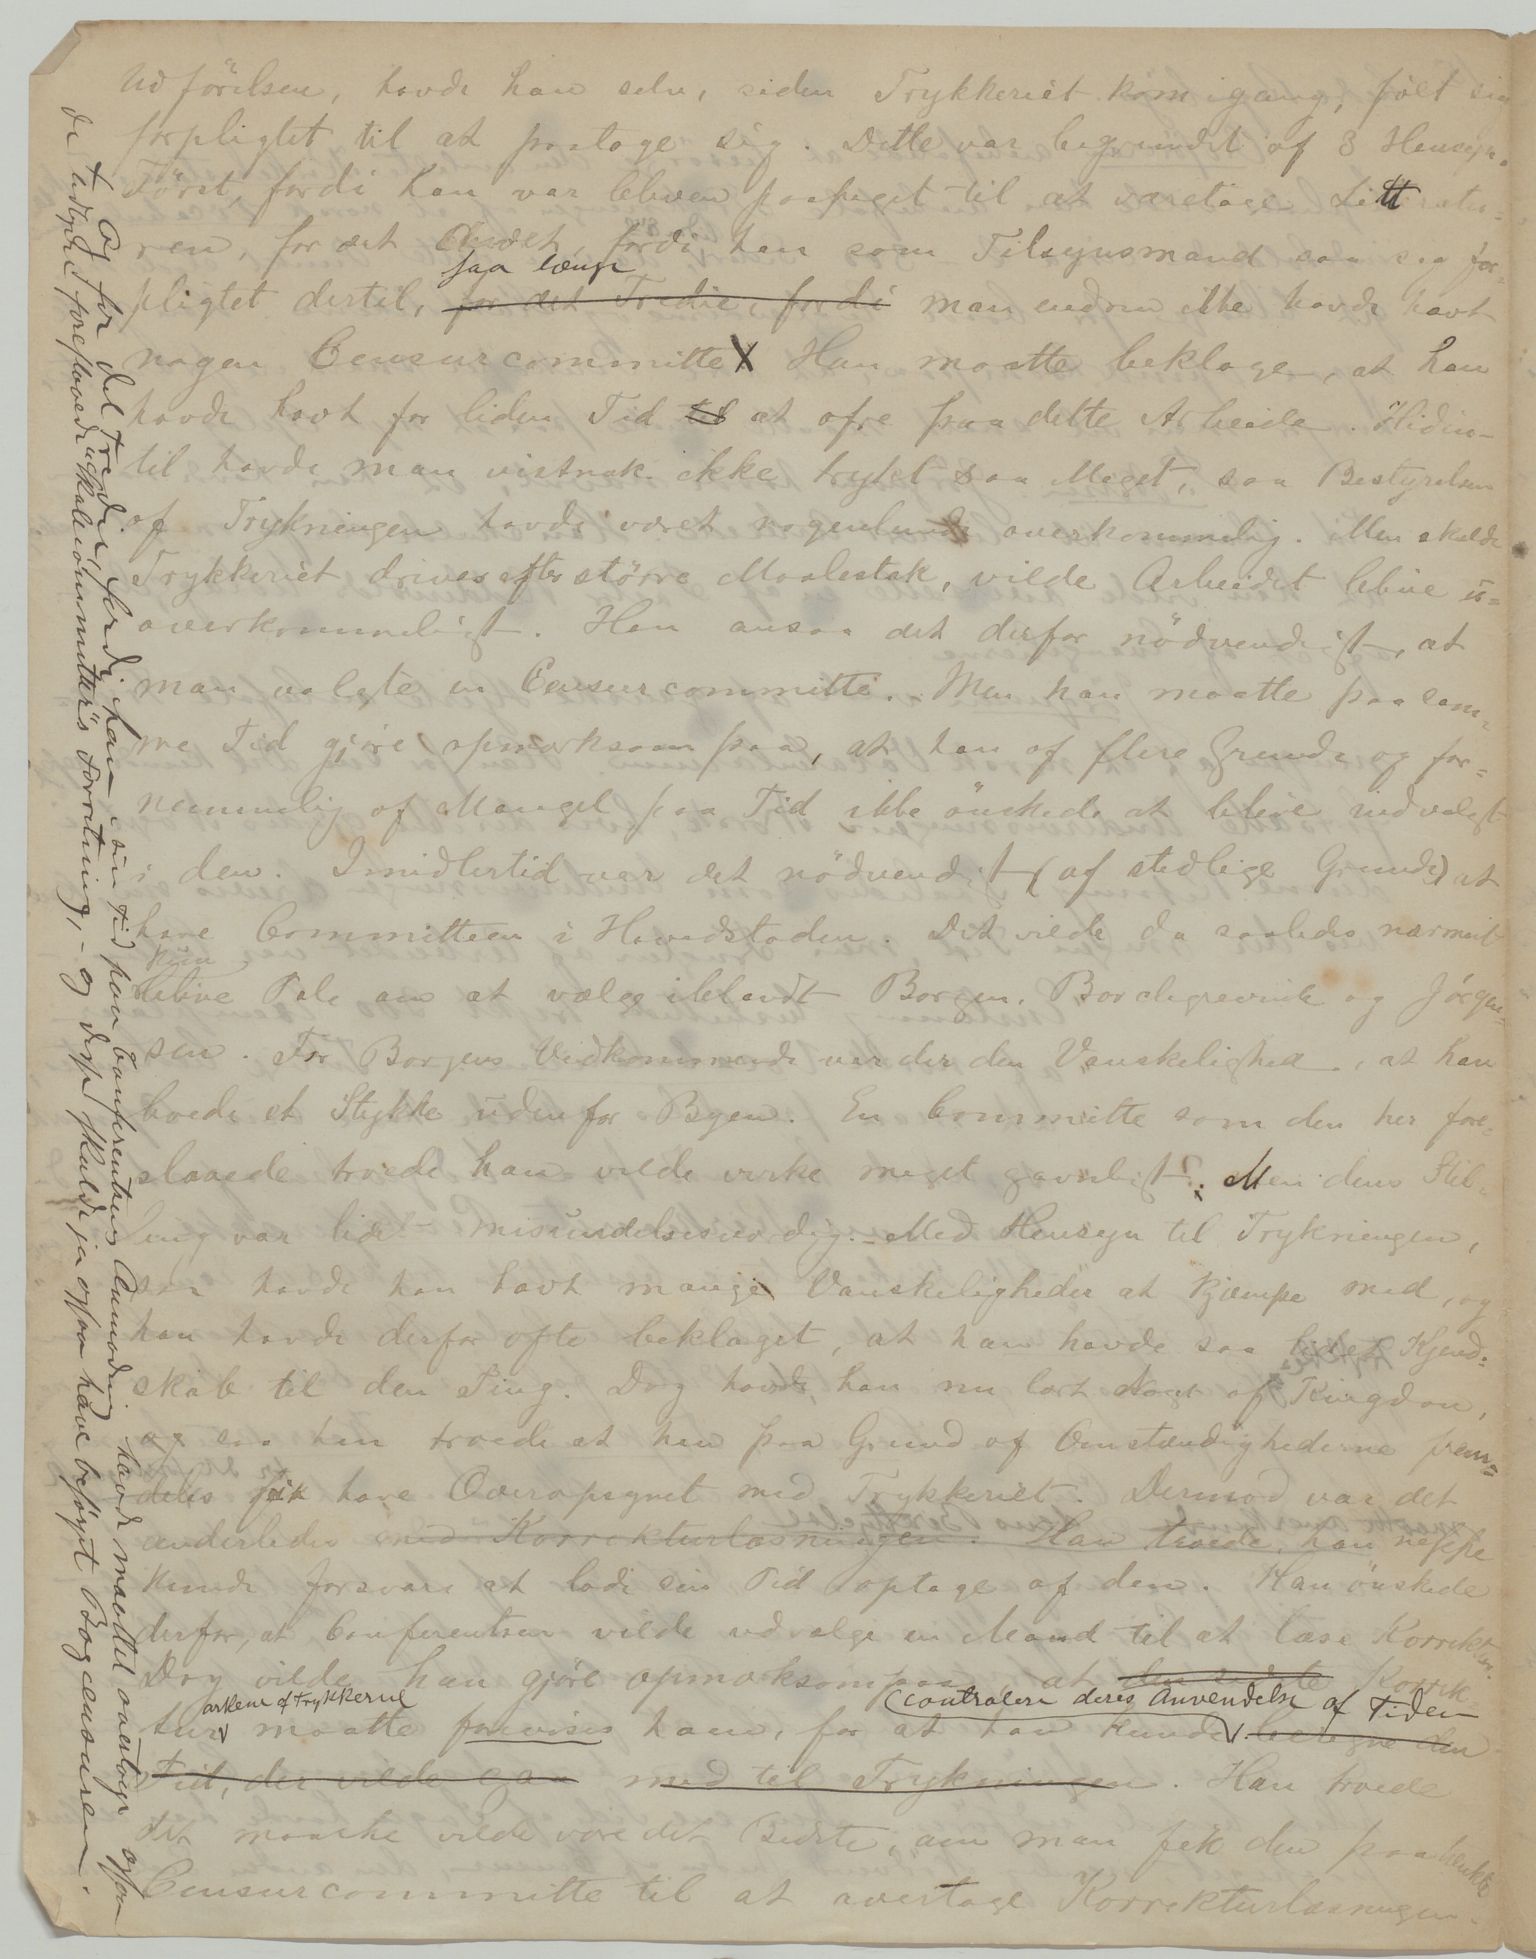 Udförelsen, havde han selv, siden Trykkeriet kom igang, fölt sig
forpligtet til at paatage sig. Dette var begrundet af 3 Hensyn.
Först, fordi han var bleven paalagt til at varetage Litteratu-
ren, for det Andet, fordi han som Tilsynsmand saa sig for-
saa længe
pligtet dertil, for det Tredie, fordi man endnu ikke havde havt
nogen Censurcommitte. Han maatte beklage, at han
havde havt for liden Tid til at ofre paa dette Arbeide. Hidin-
til havde man vistnok ikke trykt saa Meget, saa Bestyrelsen
af Trykningen havde været nogenlunde overkommelig. Men skulde
Trykkeriet drives efter större Maalestok, vilde Arbeidet blive u-
overkommeligt. Han ansaa det derfor nödvendigt, at
man valgte en Censurcommitte. Men han maatte paa sam-
me Tid gjöre opmærksom paa, at han af flere Grunde og for-
nemmelig af Mangel paa Tid ikke önskede at blive indvalgt
i den. Imidlertid var det nödvendigt (af stedlige Grunde) at
have Committeen i Hovedstaden. Det vilde da saaledes nærmest
kun
blive Tale om at vælge iblandt Borgen, Borchgrevink og Jörgen-
sen. For Borgens Vedkommende var der den Vanskelighed, at han
boede et Stykke udenfor Byen. En Committe som den her fore-
slaaede troede han vilde virke meget gavnligt; Men dens Stil-
ling var lidet misundelsesværdig. - Med Hensyn til Trykningen,
saa havde han havt mange Vanskeligheder at kjæmpe med, og
han havde derfor ofte beklaget, at han havde saa lidet Kjend-
skab til den Ting. Dog havde han nu lært Noget af Kingdon,
og saa han troede at han paa Grund af Omstændighederne frem-
deles fik have Overopsynet med Trykkeriet. Dermod var det
anderledes med Korrekturlæsningen. Han troede, han neppe
kunde forsvare at lade sin Tid optage af den. Han önskede
derfor, at Conferentsen vilde udvælge en Mand til at læse Korrektur.
Dog vilde han gjöre opmærksom paa, at den sidste Korrek-
arkene af Trykkerne
controlere deres Anvendelse af Tiden
tur maatte forevises ham, for at han kunde beregne den
Tid, der vilde gaa med til Trykningen. Han troede
det maaske vilde være det Bedste, om man fik den paatænkte
Censurcommitte til at overtage Korrekturlæsningen.
og for det Tredie, fordi han i sin Tid paa Conferentsens Anmodning havde maattet overtage ogsaa
de tidligere foreslaaede Skolecommitteer's Forretning, - og disse skulde jo ogsaa have besörget Bogcensuren.